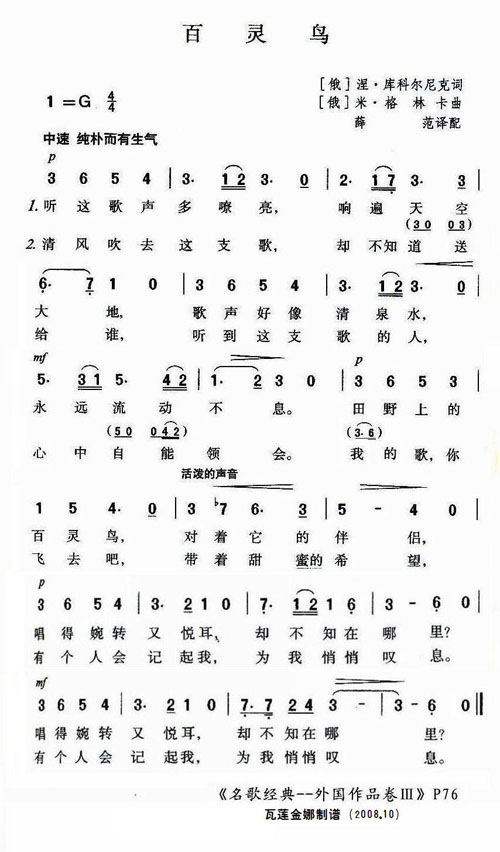 百灵鸟
[俄]涅·库科尔尼克词
1=G 4/4
[俄]米·格林卡曲
薛范译配
中速 纯朴而有生气
p
3 6 5 4 | 3· 1 2 3· 0 | 2· 1 7 3· 3 |
1.听这歌声多嘹亮，响遍天空
(3 0 0 3)
2.清风吹去这支歌，却不知道送
6· 7 1 0 | 3 6 5 4 | 3· 1 2 3· 0 |
大地，歌声好像清泉水，
给谁，听到这支歌的人，
mf p
5· 3 1 5· 4 2 | 1· 2 3 0 | 3 6 5 4 |
永远流动不息。田野上的
(5 0 0 4 2) (3·6)
心中自能领会。我的歌，你
活泼的声音
1 5 4· 0 | 3 ♭7 6· 3 | 5 - 4 0 |
百灵鸟，对着它的伴侣，
飞去吧，带着甜蜜的希望，
p
3 6 5 4 | 3· 2 1 0 | 7· 1 2 1 6 | 3 - 6 0 |
唱得婉转又悦耳，却不知在哪里？
有个人会记起我，为我悄悄叹息。
mf
3 6 5 4 | 3· 2 1 0 | 7· 7 2 4 3 | 3 - 3 - | 3 - 6 0 ‖
唱得婉转又悦耳，却不知在哪里？
有个人会记起我，为我悄悄叹息。
《名歌经典--外国作品卷Ⅲ》P76
瓦莲金娜制谱 (2008.10)